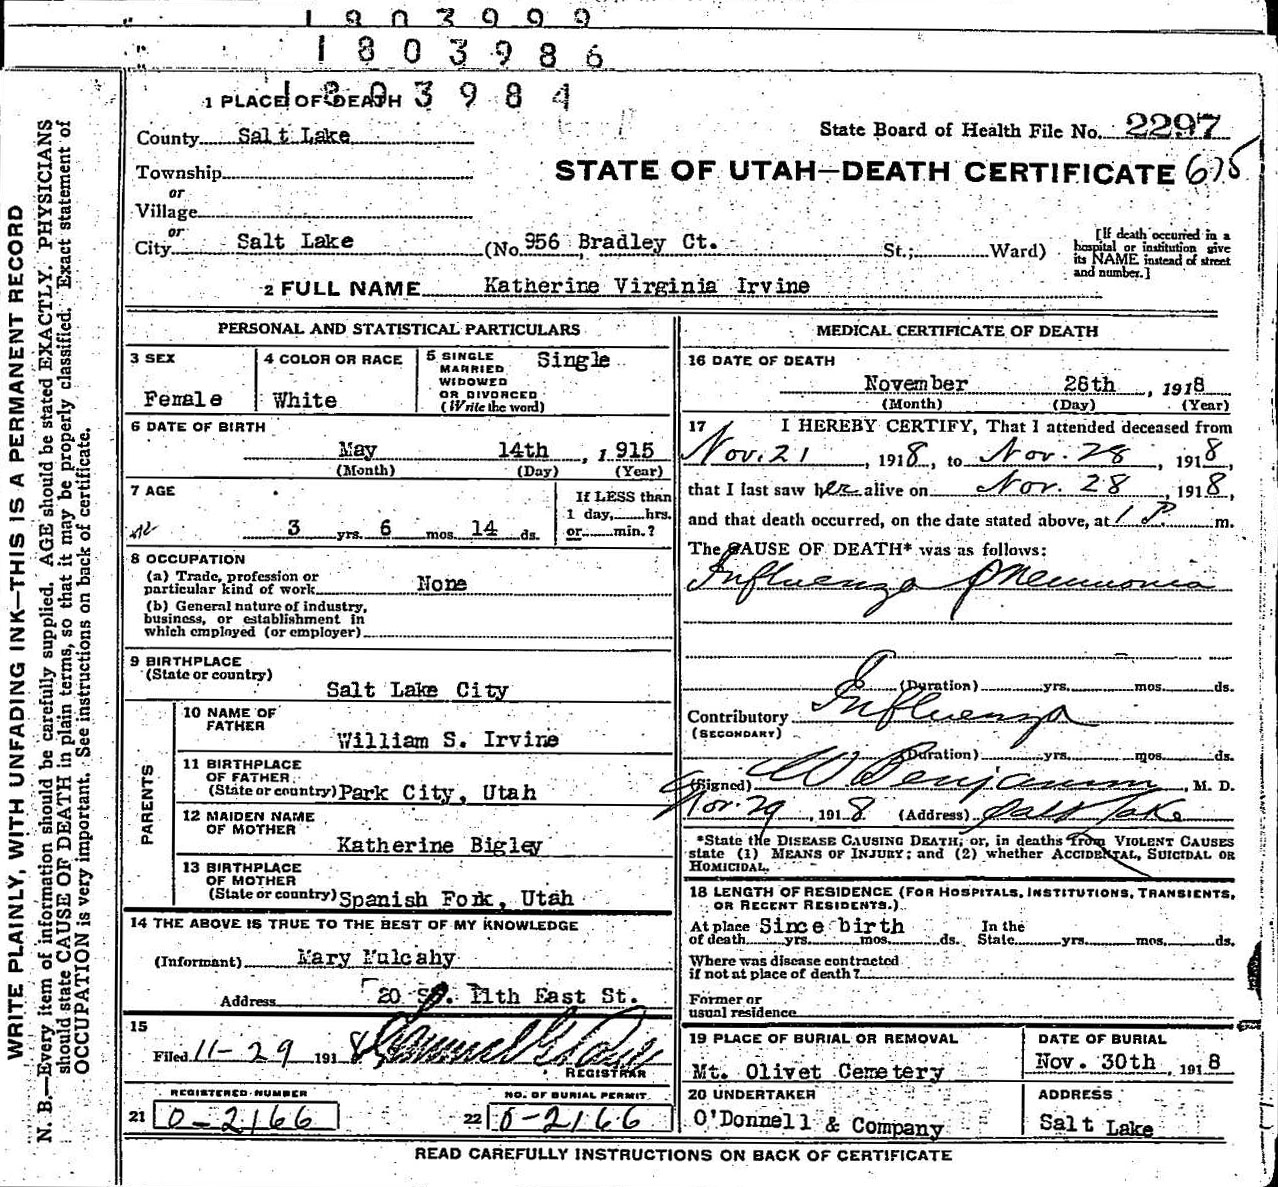 1803999
1803986
1803984
1 PLACE OF DEATH
County Salt Lake
State Board of Health File No. 2297
Township
STATE OF UTAH—DEATH CERTIFICATE 675
or
Village
or
City Salt Lake (No. 956 Bradley Ct. St.; Ward)
[If death occurred in a hospital or institution give its NAME instead of street and number.]
2 FULL NAME Katherine Virginia Irvine
PERSONAL AND STATISTICAL PARTICULARS
3 SEX
Female
4 COLOR OR RACE
White
5 SINGLE MARRIED WIDOWED OR DIVORCED (Write the word)
Single
6 DATE OF BIRTH
May 14th, 1915
(Month) (Day) (Year)
7 AGE
3 yrs. 6 mos. 14 ds.
If LESS than 1 day, hrs. or min.?
8 OCCUPATION
(a) Trade, profession or particular kind of work None
(b) General nature of industry, business, or establishment in which employed (or employer)
9 BIRTHPLACE
(State or country)
Salt Lake City
PARENTS
10 NAME OF FATHER
William S. Irvine
11 BIRTHPLACE OF FATHER
(State or country) Park City, Utah
12 MAIDEN NAME OF MOTHER
Katherine Bigley
13 BIRTHPLACE OF MOTHER
(State or country) Spanish Fork, Utah
14 THE ABOVE IS TRUE TO THE BEST OF MY KNOWLEDGE
(Informant) Mary Mulcahy
Address 20 So. 11th East St.
15
Filed 11-29 1918
REGISTRAR
REGISTERED NUMBER
21 0-2166
NO. OF BURIAL PERMIT
22 0-2166
MEDICAL CERTIFICATE OF DEATH
16 DATE OF DEATH
November 28th, 1918
(Month) (Day) (Year)
17 I HEREBY CERTIFY, That I attended deceased from
Nov. 21, 1918, to Nov. 28, 1918,
that I last saw her alive on Nov. 28, 1918,
and that death occurred, on the date stated above, at 1 P. m.
The CAUSE OF DEATH* was as follows:
Influenza pneumonia
(Duration) yrs. mos. ds.
Contributory Influenza
(SECONDARY)
(Duration) yrs. mos. ds.
(Signed) W Benjamin, M. D.
Nov. 29, 1918 (Address) Salt Lake
*State the DISEASE CAUSING DEATH; or, in deaths from VIOLENT CAUSES
state (1) MEANS OF INJURY; and (2) whether ACCIDENTAL, SUICIDAL OR
HOMICIDAL.
18 LENGTH OF RESIDENCE (FOR HOSPITALS, INSTITUTIONS, TRANSIENTS,
OR RECENT RESIDENTS.)
At place of death Since birth yrs. mos. ds. In the State yrs. mos. ds.
Where was disease contracted
if not at place of death?
Former or
usual residence
19 PLACE OF BURIAL OR REMOVAL
Mt. Olivet Cemetery
DATE OF BURIAL
Nov. 30th, 1918
20 UNDERTAKER
O'Donnell & Company
ADDRESS
Salt Lake
READ CAREFULLY INSTRUCTIONS ON BACK OF CERTIFICATE
WRITE PLAINLY, WITH UNFADING INK—THIS IS A PERMANENT RECORD
N. B.—Every item of information should be carefully supplied. AGE should be stated EXACTLY. PHYSICIANS
should state CAUSE OF DEATH in plain terms, so that it may be properly classified. Exact statement of
OCCUPATION is very important. See instructions on back of certificate.